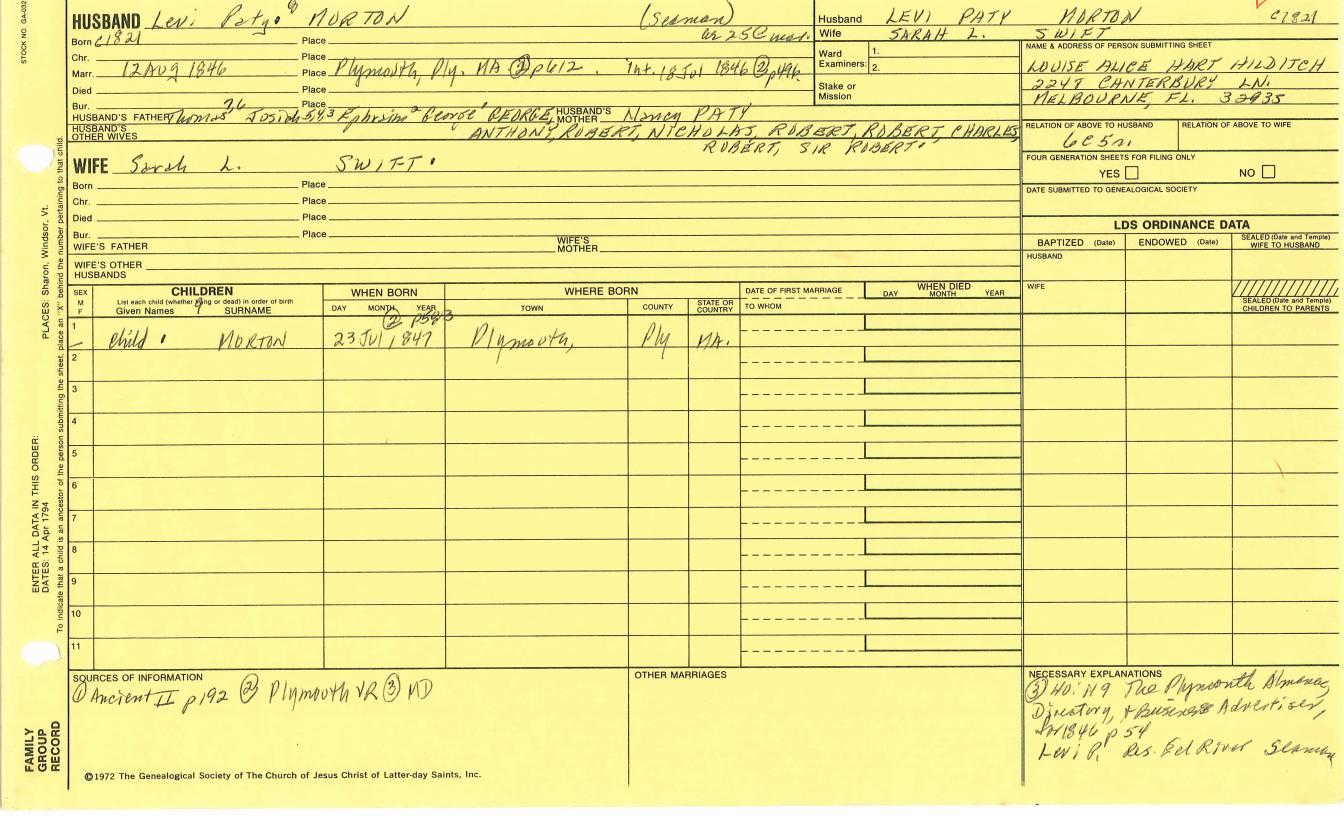 STOCK NO. GA-032
HUSBAND Levi Paty MORTON (Seaman)
Born c1821 Place ae 25 @ mar.
Chr. Place
Marr. 12 Aug 1846 Place Plymouth, Ply. MA ② p612. Int. 18 Jul 1846 ② p496
Died Place
Bur. Place
HUSBAND'S FATHER Thomas⁶ Josiah⁵,⁴,³ Ephraim² George¹ GEORGE, HUSBAND'S MOTHER Nancy PATY
HUSBAND'S OTHER WIVES ANTHONY, ROBERT, NICHOLAS, ROBERT, ROBERT, CHARLES,
ROBERT, SIR ROBERT.
WIFE Sarah L. SWIFT.
Born Place
Chr. Place
Died Place
Bur. Place
WIFE'S FATHER WIFE'S MOTHER
WIFE'S OTHER HUSBANDS
Husband LEVI PATY MORTON c1821
Wife SARAH L. SWIFT
Ward Examiners: 1.
2.
Stake or Mission
NAME & ADDRESS OF PERSON SUBMITTING SHEET
LOUISE ALICE HART HILDITCH
2247 CANTERBURY LN.
MELBOURNE, FL. 32935
RELATION OF ABOVE TO HUSBAND RELATION OF ABOVE TO WIFE
6C5r.
FOUR GENERATION SHEETS FOR FILING ONLY
YES NO
DATE SUBMITTED TO GENEALOGICAL SOCIETY
LDS ORDINANCE DATA
BAPTIZED (Date) ENDOWED (Date) SEALED (Date and Temple) WIFE TO HUSBAND
HUSBAND
WIFE
SEALED (Date and Temple) CHILDREN TO PARENTS
SEX M F
CHILDREN
List each child (whether living or dead) in order of birth
Given Names SURNAME
WHEN BORN
DAY MONTH YEAR
WHERE BORN
TOWN COUNTY STATE OR COUNTRY
DATE OF FIRST MARRIAGE
TO WHOM
WHEN DIED
DAY MONTH YEAR
② p583
1 child MORTON 23 Jul 1847 Plymouth, Ply MA.
2
3
4
5
6
7
8
9
10
11
SOURCES OF INFORMATION
① Ancient II p192 ② Plymouth VR ③ MD
OTHER MARRIAGES
NECESSARY EXPLANATIONS
③ 40: 119 The Plymouth Almanac,
Directory, & Business Advertiser,
for 1846 p 54
Levi P. Res. Eel River Seaman
©1972 The Genealogical Society of The Church of Jesus Christ of Latter-day Saints, Inc.
ENTER ALL DATA IN THIS ORDER:
DATES: 14 Apr 1794
PLACES: Sharon, Windsor, Vt.
To indicate that a child is an ancestor of the person submitting the sheet, place an "X" behind the number pertaining to that child.
FAMILY GROUP RECORD